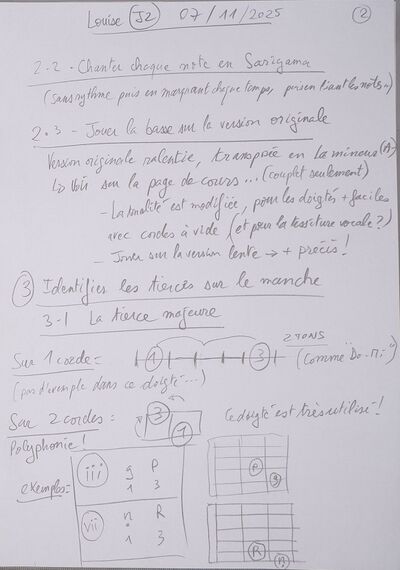 Louise (J2) 07/11/2025 (2)
2-2 - Chanter chaque note en Sarigama
(sans rythme puis en marquant chaque temps, puis en liant les notes)
2.3 - Jouer la basse sur la version originale
Version originale ralentie, transposée en La mineur (A-)
↳ Voir sur la page de cours... (couplet seulement)
- La tonalité est modifiée, pour les doigtés + faciles
avec cordes à vide (et pour la tessiture vocale ?)
- Jouer sur la version lente → + précis !
(3) Identifier les tierces sur le manche
3-1 La tierce majeure
Sur 1 corde = 1 3 2 TONS (Comme "Do - Mi")
(pas d'exemple dans ce doigté...)
Sur 2 cordes : 3 1 Ce doigté est très utilisé !
Polyphonie !
exemples =
iii g P
1 3
P g
vii n R
1 3
R n